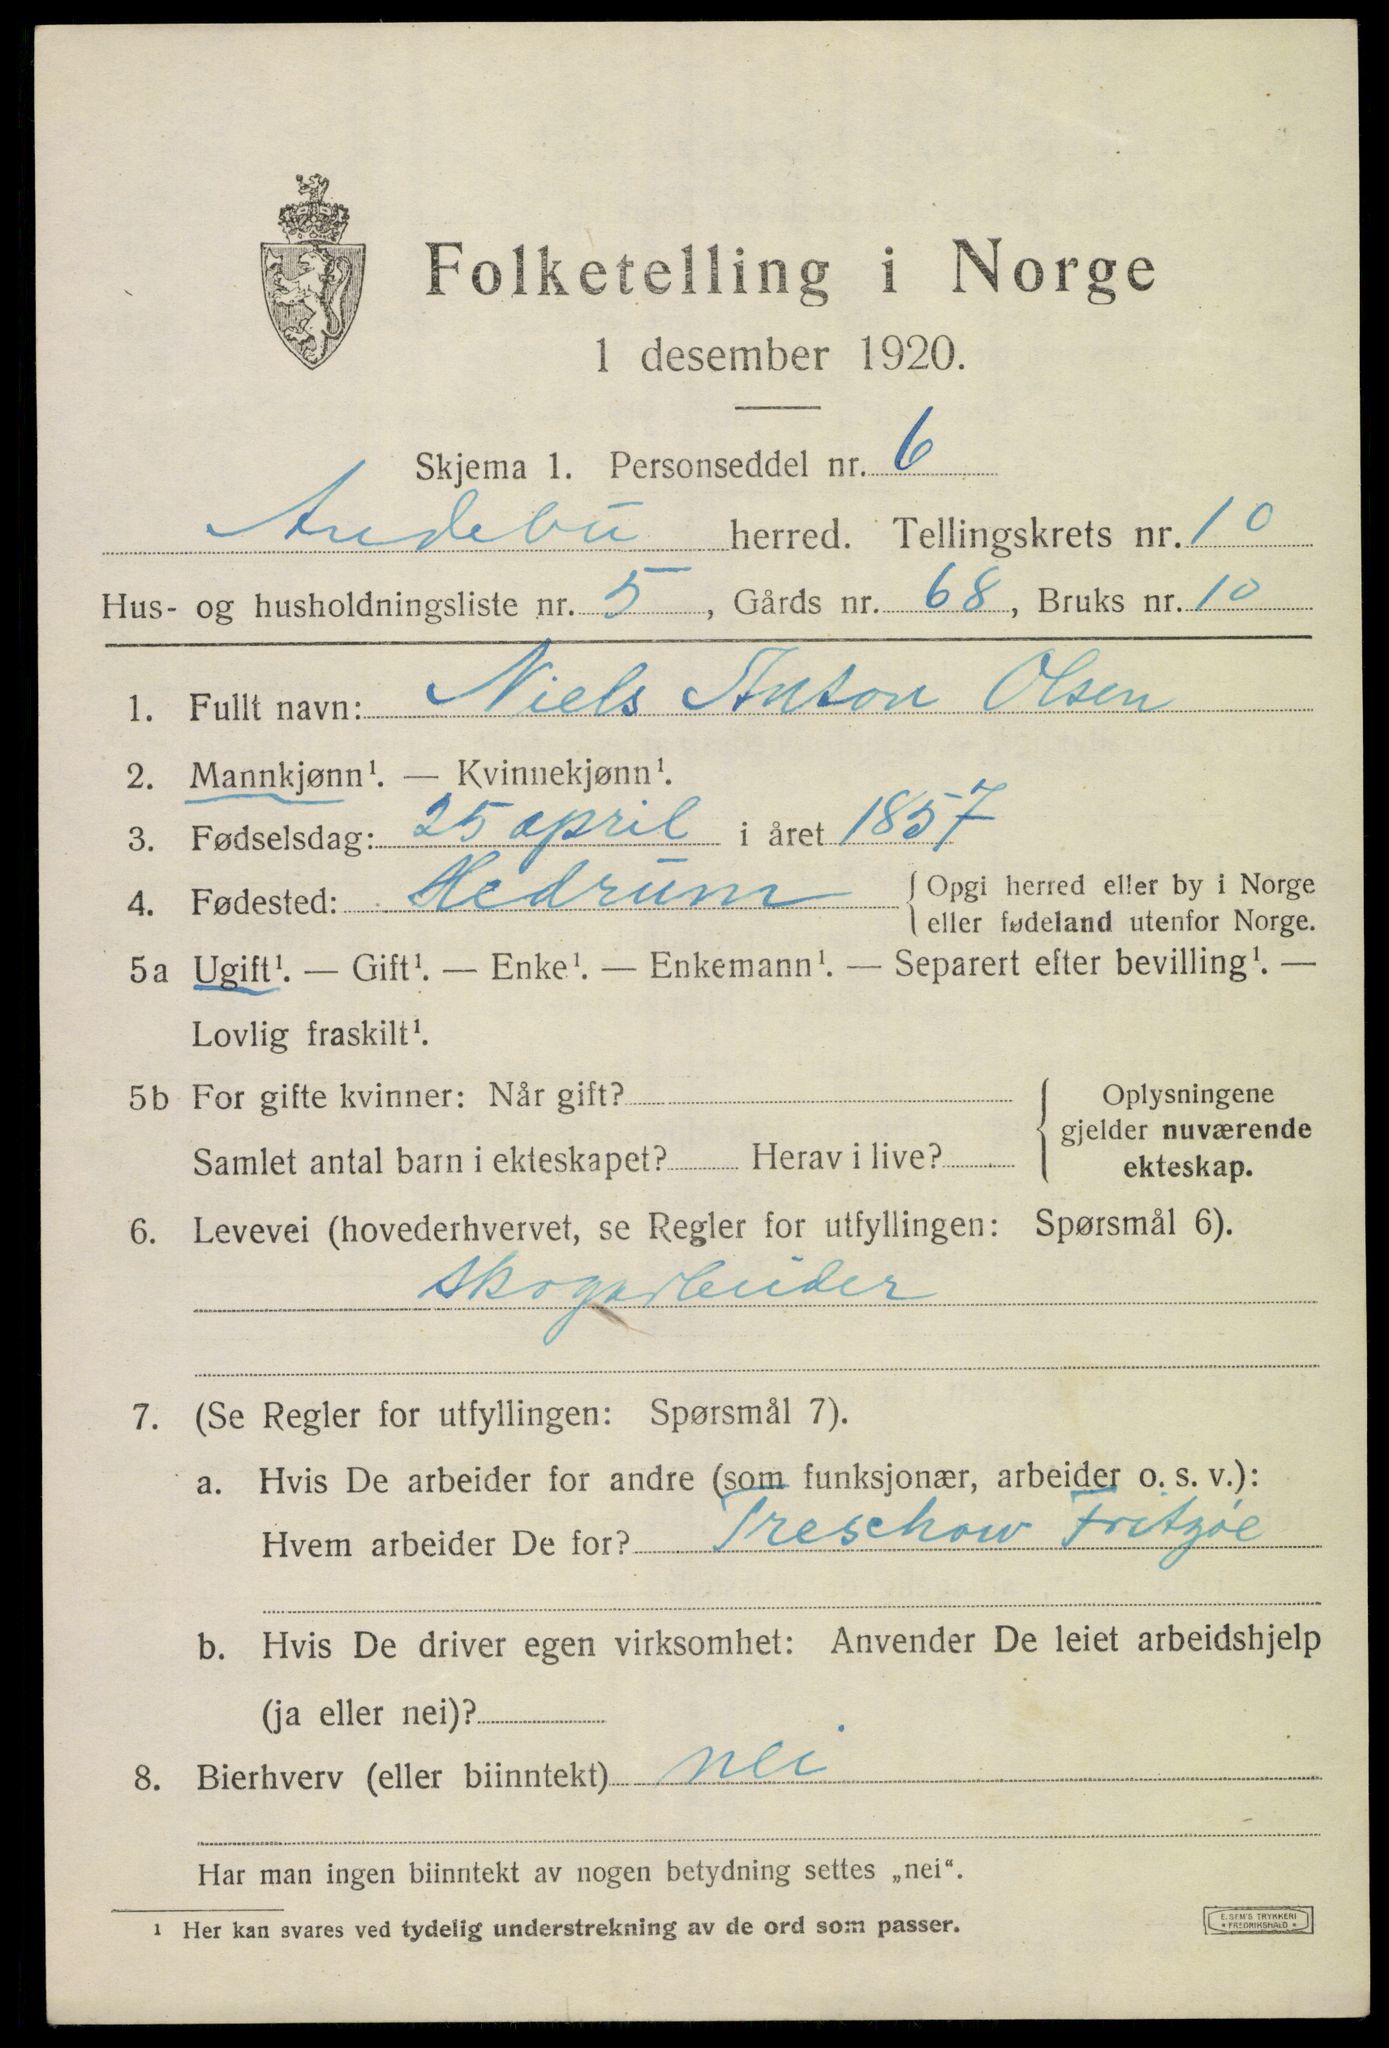 Folketelling i Norge
1 desember 1920.
Skjema 1. Personseddel nr. 6
Andebu herred. Tellingskrets nr. 10
Hus- og husholdningsliste nr. 5, Gårds nr. 68, Bruks nr. 10
1. Fullt navn: Niels Anton Olsen
2. Mannkjønn¹. — Kvinnekjønn¹.
3. Fødselsdag: 25 april i året 1857
4. Fødested: Hedrum { Opgi herred eller by i Norge
eller fødeland utenfor Norge.
5a Ugift¹. — Gift¹. — Enke¹. — Enkemann¹. — Separert efter bevilling¹. —
Lovlig fraskilt¹.
5b For gifte kvinner: Når gift?
Samlet antal barn i ekteskapet? Herav i live?
{ Oplysningene
gjelder nuværende
ekteskap.
6. Levevei (hovederhvervet, se Regler for utfyllingen: Spørsmål 6).
Skogarbeider
7. (Se Regler for utfyllingen: Spørsmål 7).
a. Hvis De arbeider for andre (som funksjonær, arbeider o. s. v.):
Hvem arbeider De for? Treschow Fritzøe
b. Hvis De driver egen virksomhet: Anvender De leiet arbeidshjelp
(ja eller nei)?
8. Bierhverv (eller biinntekt) nei
Har man ingen biinntekt av nogen betydning settes „nei“.
¹ Her kan svares ved tydelig understrekning av de ord som passer.
E. SEM'S TRYKKERI
* FREDRIKSHALD *